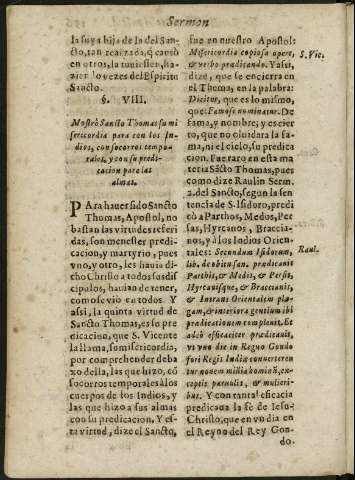 Sermon
la suya hija de la del Sancto,
tan realzada, q̃ causó
en otros, la tuviesse,
hazier
Sancto.
§. VIII.
Mostrò Sancto Thomas su misericordia
para con los Indios,
con socorros temporales,
y con su predicacion
para las
almas.
PAra haver sido Sancto
Thomas, Apostol, no
bastan las virtudes referidas,
son menester predicacion,
y martyrio, pues
vno, y otro, les havia dicho
Christo a todos sus discipulos,
havian de tener,
como se viò en todos. Y
assi, la quinta virtud de
Sancto Thomas, es su predicacion,
que S. Vicente
la llama, su misericordia,
por comprehender debaxo
de lla, las que hizo, cõ
socorros temporales à los
cuerpos de los Indios, y
las que hizo a sus almas
con su predicacion. Y esta
virtud, dize el Sancto,
fue en nuestro Apostol:
Misericordia copiosa opere,
& verbo prædicando. Y assi,
dize, que se encierra en
el Thema, en la palabra:
Dicitur, que es lo mismo,
que: Famose nominatur. De
fama, y nombre; y es cierto,
que no olvidara la fama,
ni el cielo, su predicacion.
Fue raro en esta materia
Sãcto Thomas, pues
como dize Raulin Serm.
2. del Sancto, segun la sentencia
de S. Isidoro, predicò
a Parthos, Medos, Persas,
Hyrcanos, Braccianos,
y à los Indios Orientales:
Secundum Isidorum,
lib. de obitu san. prædicauit
Parthis, & Medis, & Persis,
Hyrcanisque, & Braccianis,
& Intrans Orientalem plagam,
& interiora gentium ibi
prædicationem complevit. Et
adeò efficaciter prædicauit,
vt vno die in Regno Gondofori
Regis Indiæ converterentur
novem millia hominũ, exceptis
parvulis, & mulieribus.
Y con tanta eficacia
predicaua la fè de Iesu-
Christo, que en vn dia en
el Reyno del Rey Gondo-
S. Vic.
Raul.